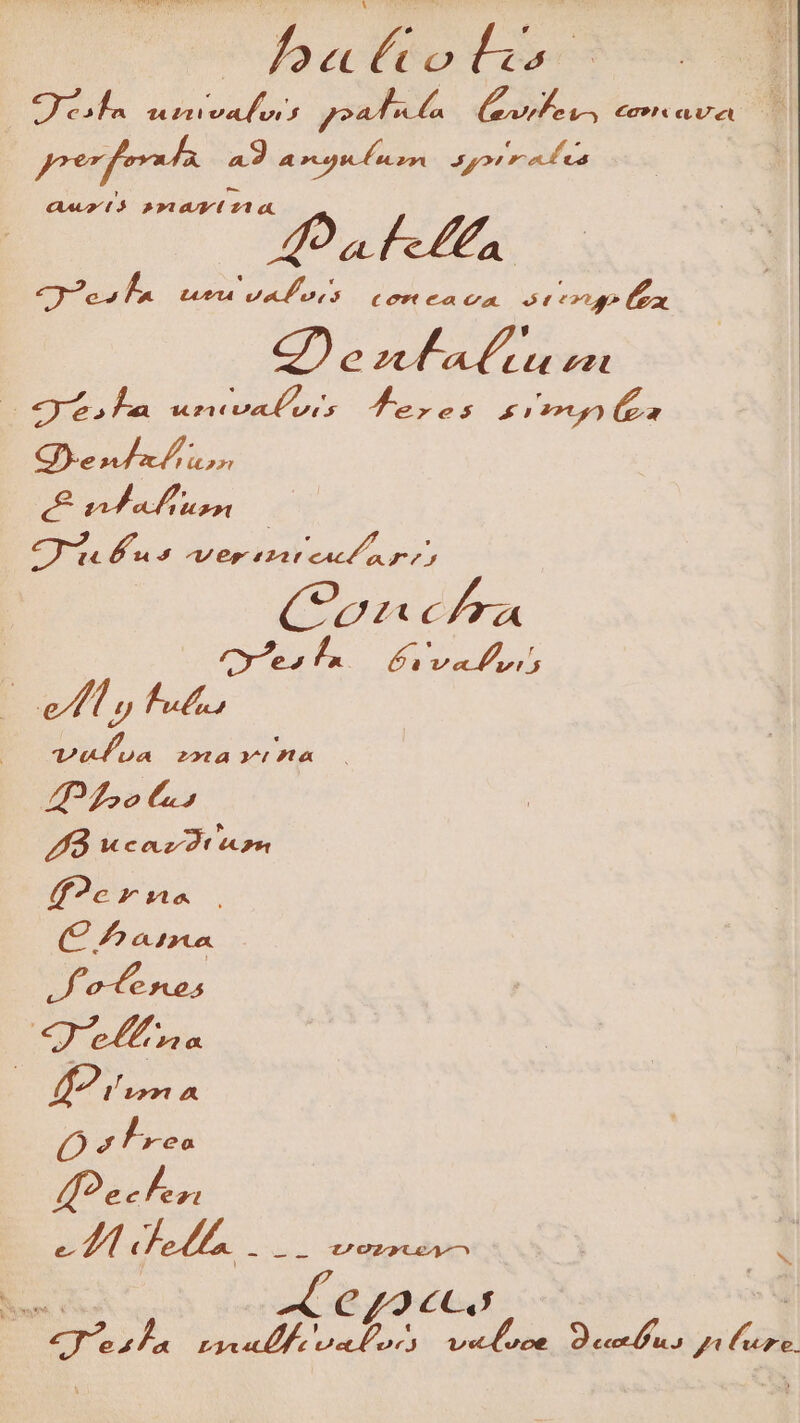 haliotis
Testa univalvis patula leviter concava
perforata ad angulum spiralis
auris marina
Patella
Testa univalvis concava simplex
Dentalium
Testa univalvis teres simplex
Dentalium
Entalium
Tubus vermicularis
Concha
Testa bivalvis
Mytulus
vulva marina
Pholus
Bucardium
Perna
Chama
Solenes
Tellina
Pinna
Ostrea
Pecten
Mitella ---
Lepas
Testa multivalvis valvoe duabus plure.